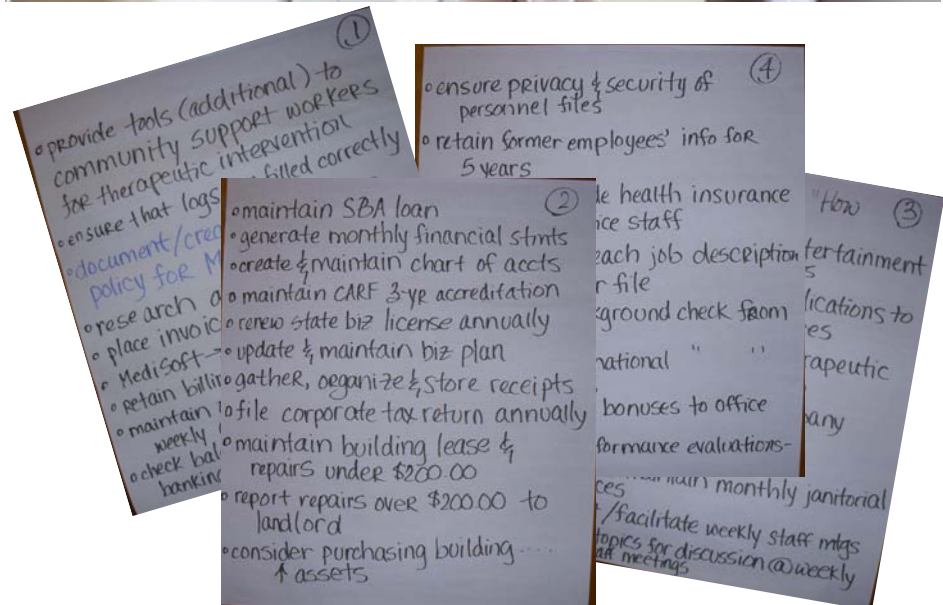 1
• provide tools (additional) to
community support workers
for therapeutic intervention
• ensure that logs filled correctly
• document/
policy for M
• research
• place invoic
• MediSoft →
• retain billin
• maintain
weekly
• check bal
banking
2
• maintain SBA loan
• generate monthly financial stmts
• create & maintain chart of accts
• maintain CARF 3-yr accreditation
• renew state biz license annually
• update & maintain biz plan
• gather, organize & store receipts
• file corporate tax return annually
• maintain building lease &
repairs under $200.00
• report repairs over $200.00 to
landlord
• consider purchasing building ....
↑ assets
4
• ensure privacy & security of
personnel files
• retain former employees' info for
5 years
de health insurance
ice staff
each job description
r file
ground check from
national " "
bonuses to office
formance evaluations-
"How 3
tertainment
s
lications to
es
rapeutic
any
monthly janitorial
ces
/facilitate weekly staff mtgs
topics for discussion @ weekly
aff meetings